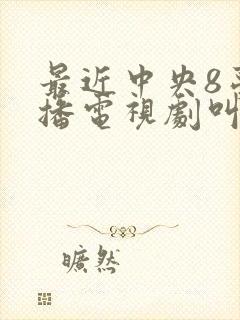 最近中央8
播電視劇叫
曠然